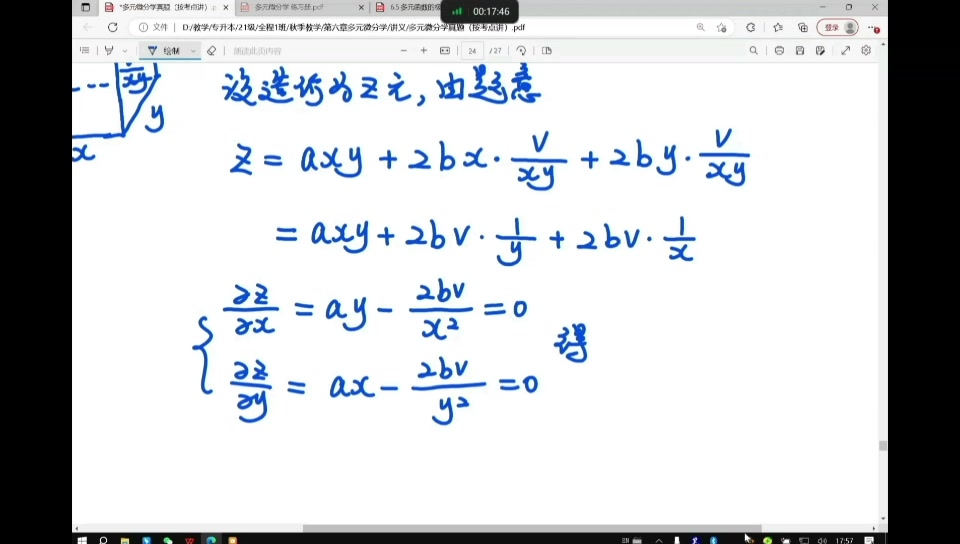 *多元微分学真题（按考点讲）.p × 多元微分学 练习题.pdf × 6.5 多元函数的极 00:17:46
文件 D:/教学/专升本/21级/全程1班/秋季教学/第六章多元微分学/讲义/多元微分学真题（按考点讲）.pdf 登录
绘制 朗读此页内容 24 /27
xy
y
x
设造价为z元，由题意
z = axy + 2bx · V/xy + 2by · V/xy
= axy + 2bV · 1/y + 2bV · 1/x
∂z/∂x = ay − 2bV/x² = 0
得
∂z/∂y = ax − 2bV/y² = 0
17:57